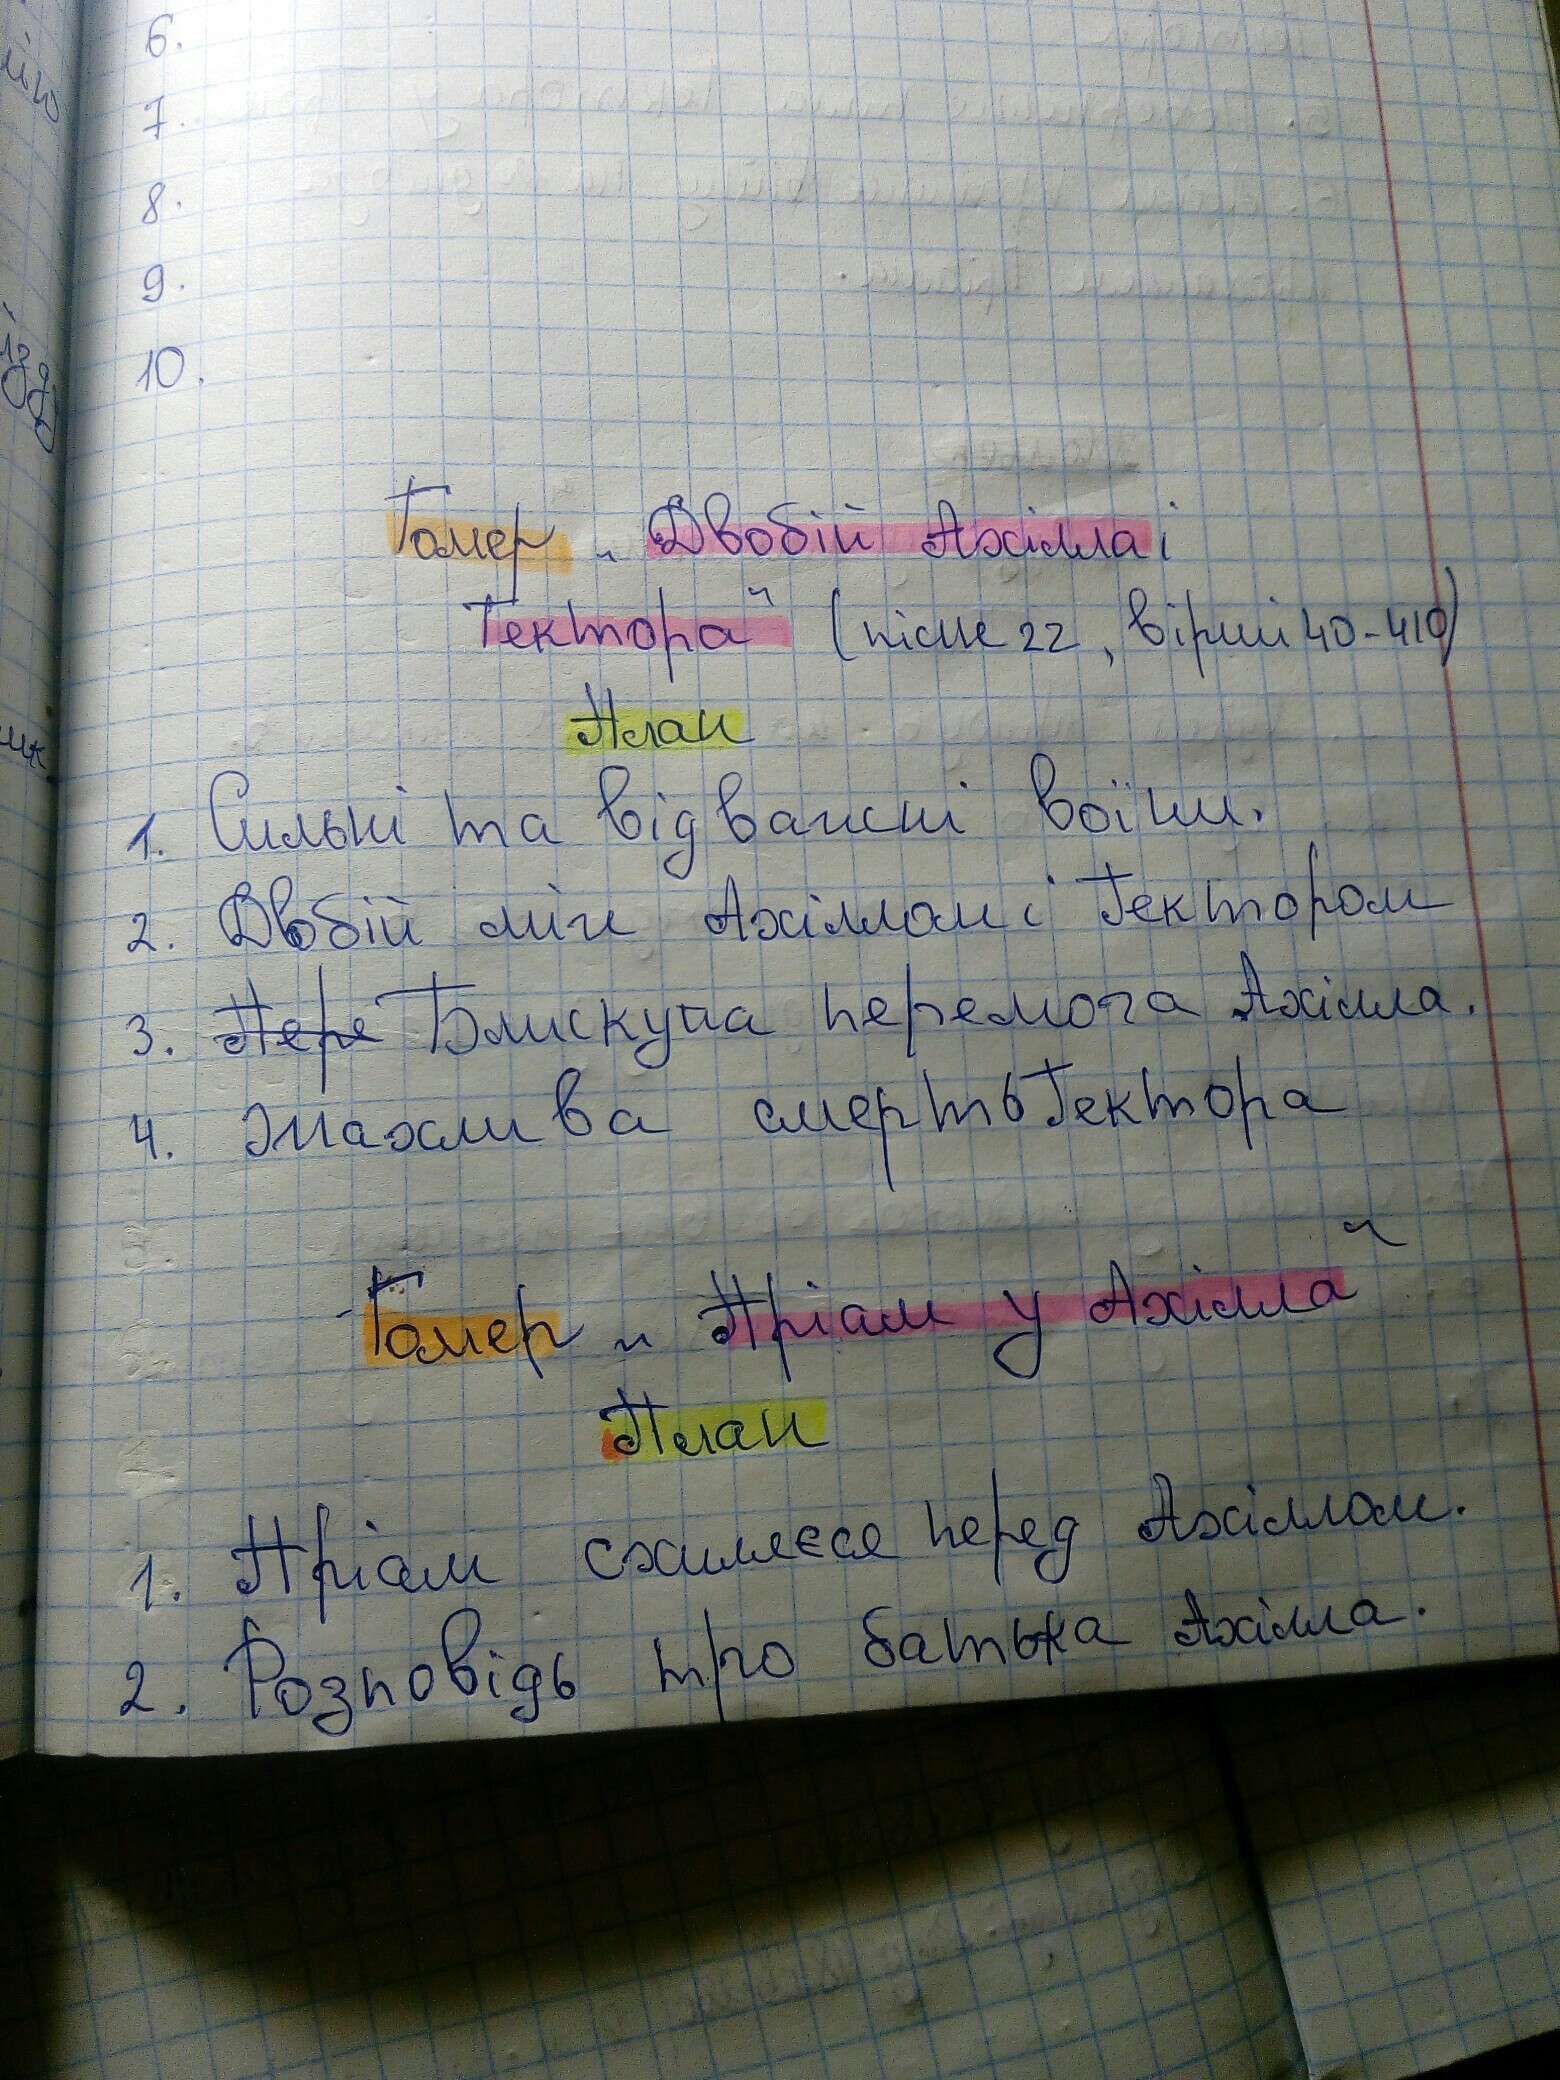 6.
7.
8.
9.
10.
Гомер „Двобій Ахілла і
Гектора" (пісня 22, вірші 40-410)
План
1. Сильні та відважні воїни.
2. Двобій між Ахіллом і Гектором
3. Пере Блискуча перемога Ахілла.
4. Жахлива смерть Гектора
Гомер „Пріам у Ахілла"
План
1. Пріам схиляєся перед Ахіллом.
2. Розповідь про батька Ахілла.